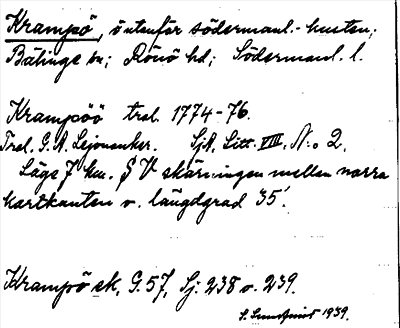 Krampö, ö utanför södermanl.-kusten;
Bälinge sn; Rönö hd; Södermanl. l.
Krampöö trol. 1774-76.
Trol. G. A. Lejonanker. SjA, Litt. VIII, N:o 2.
Läge 7 km. S V skärningen mellan norra
kartkanten o. längdgrad 35'.
Krampö sk, G. 57, Sj. 238 o. 239.
S. Lundquist 1939.